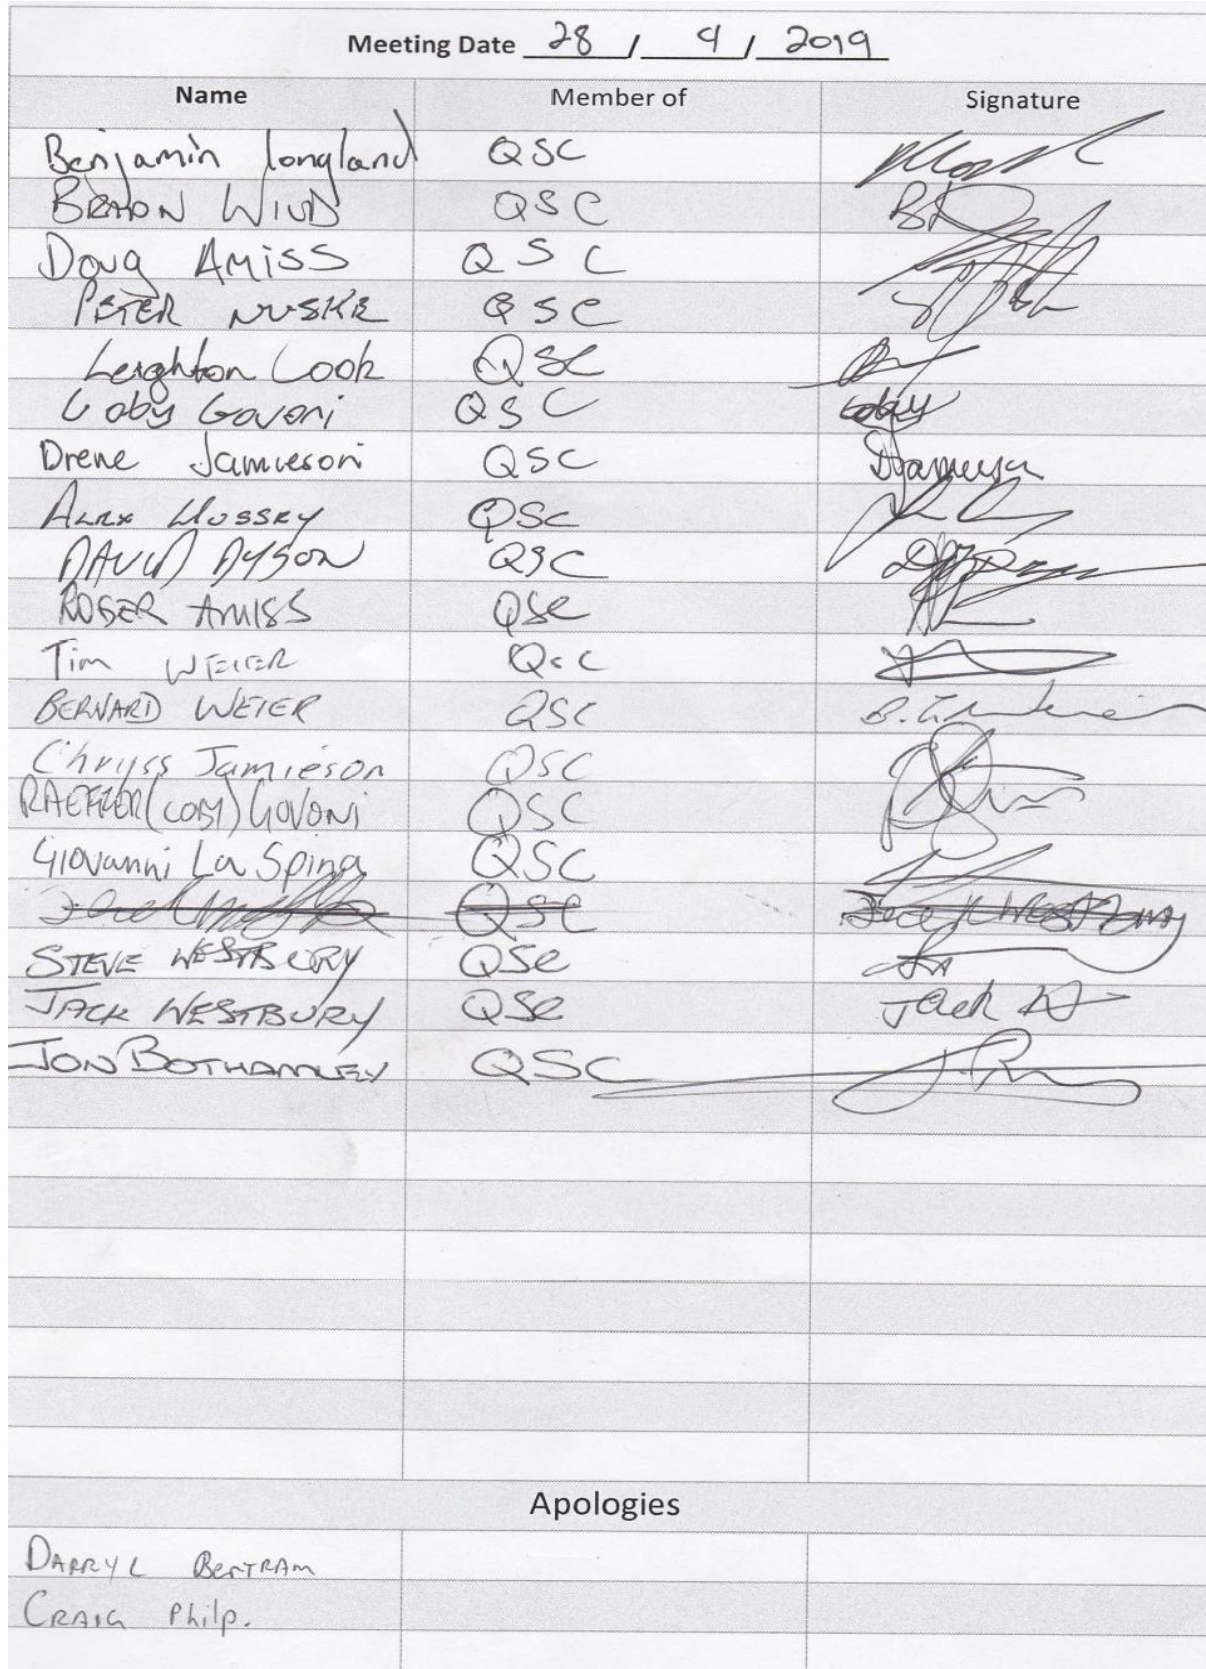 Meeting Date 28 / 4 / 2019
Name Member of Signature
Benjamin Longland QSC
QSC
Doug Amiss QSC
PETER NUSKE QSC
Leighton Cook QSC
Coby Govoni QSC Coby
Drene Jamieson QSC DJamieson
ALEX HUSSEY QSC
DAVID DYSON QSC
ROGER AMISS QSC
Tim WEIER QSC
BERNARD WEIER QSC
Chryss Jamieson QSC
(COBY) GOVONI QSC
Giovanni La Spina QSC
QSC
STEVE WESTBURY QSC
JACK WESTBURY QSC Jack
JON BOTHAMLEY QSC
Apologies
DARRYL BERTRAM
CRAIG Philp.